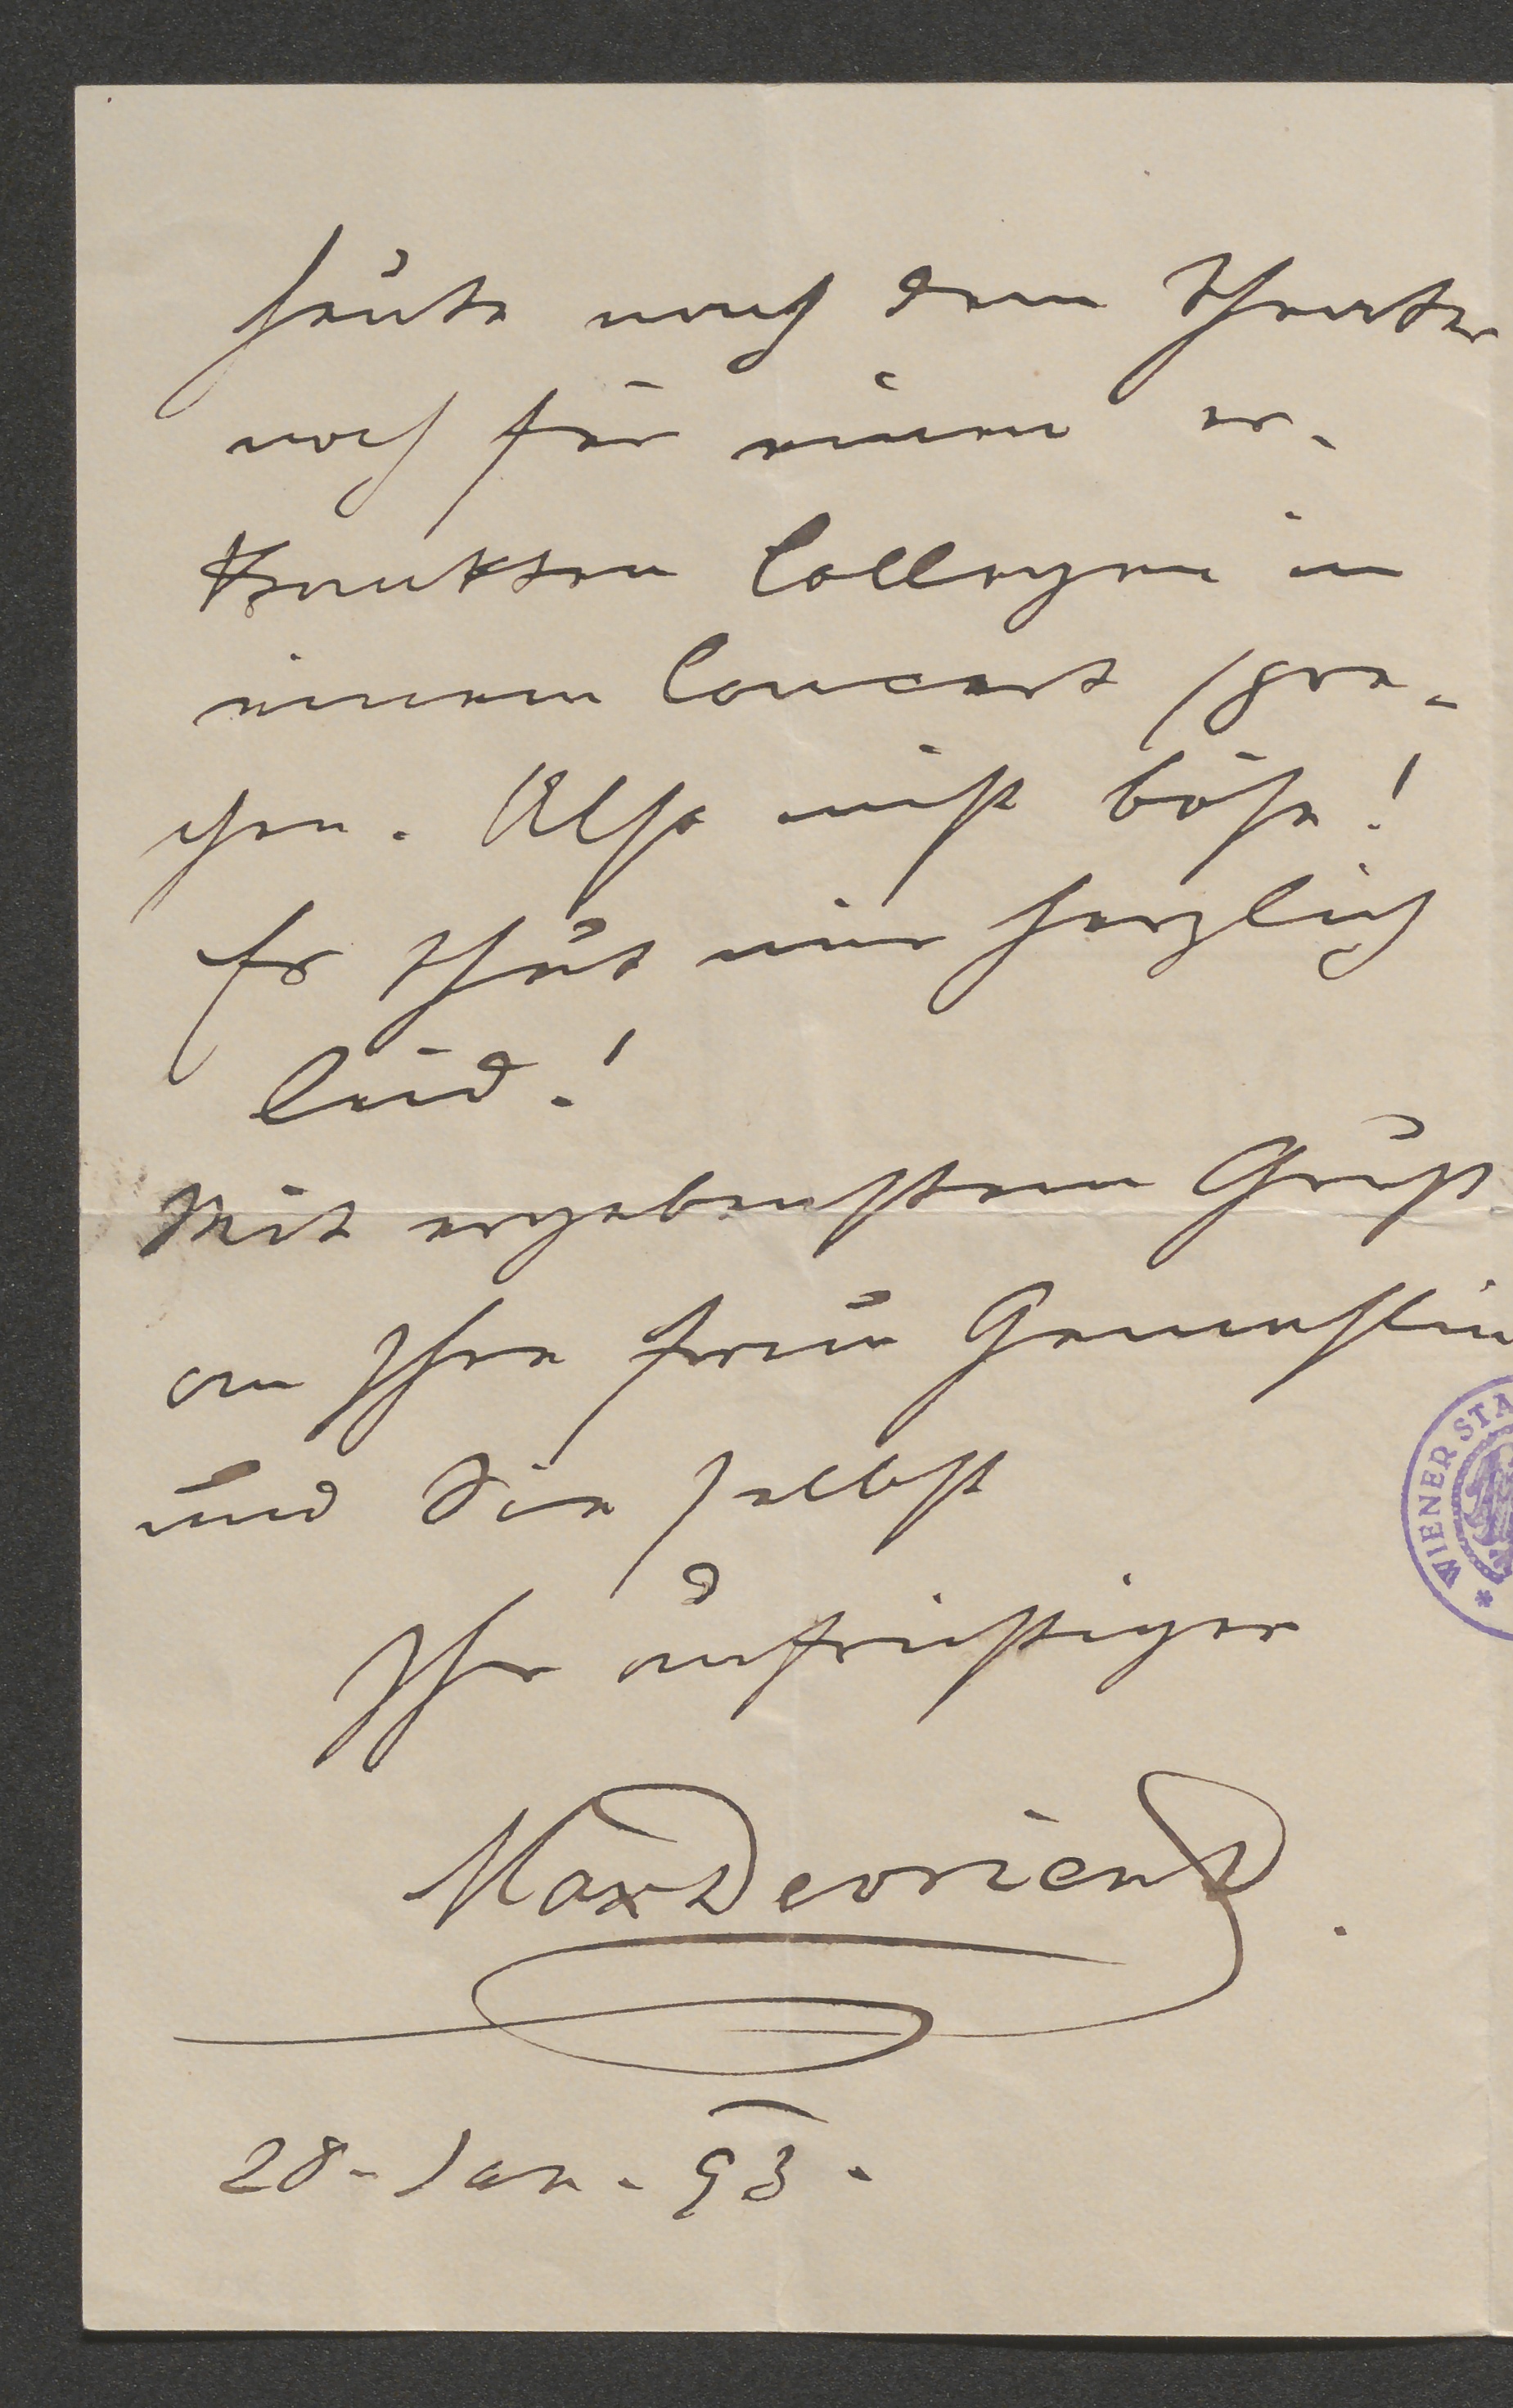 heute nach dem Theater
noch für einen er-
krankten Collegen in
einem Concert spre-
chen. Also nicht böse!
Es thut mir herzlich
leid!
Mit ergebenstem Gruß
an Ihre Frau Gemahlin
und Sie selbst
Ihr aufrichtiger
Max Devrient.
28. Jan. 93.
WIENER STA